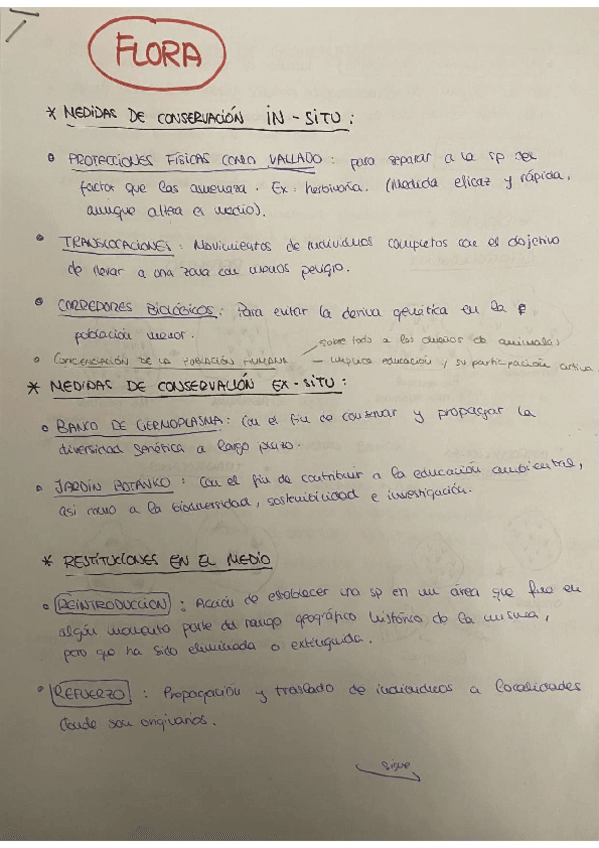 FLORA
* MEDIDAS DE CONSERVACIÓN IN-SITU:
• PROTECCIONES FÍSICAS COMO VALLADO: para separar a la sp del
factor que las amenaza. Ex: herbivoría. (Medida eficaz y rápida,
aunque altera el medio).
• TRANSLOCACIONES: Movimientos de individuos completos con el objetivo
de llevar a una zona con menos peligro.
• CORREDORES BIOLÓGICOS: Para evitar la deriva genética en la
población menor.
sobre todo a los dueños de animales
• CONCIENCIACIÓN DE LA POBLACIÓN HUMANA — implica educación y su participación activa.
* MEDIDAS DE CONSERVACIÓN EX-SITU:
• BANCO DE GERMOPLASMA: Con el fin de conservar y propagar la
diversidad genética a largo plazo.
• JARDÍN BOTÁNICO: Con el fin de contribuir a la educación ambiental,
así como a la biodiversidad, sostenibilidad e investigación.
* RESTITUCIONES EN EL MEDIO
• REINTRODUCCIÓN: Acción de establecer una sp en un área que fue en
algún momento parte del rango geográfico histórico de la misma,
pero que ha sido eliminada o extinguida.
• REFUERZO: Propagación y traslado de individuos a localidades
donde son originarios.
Sigue